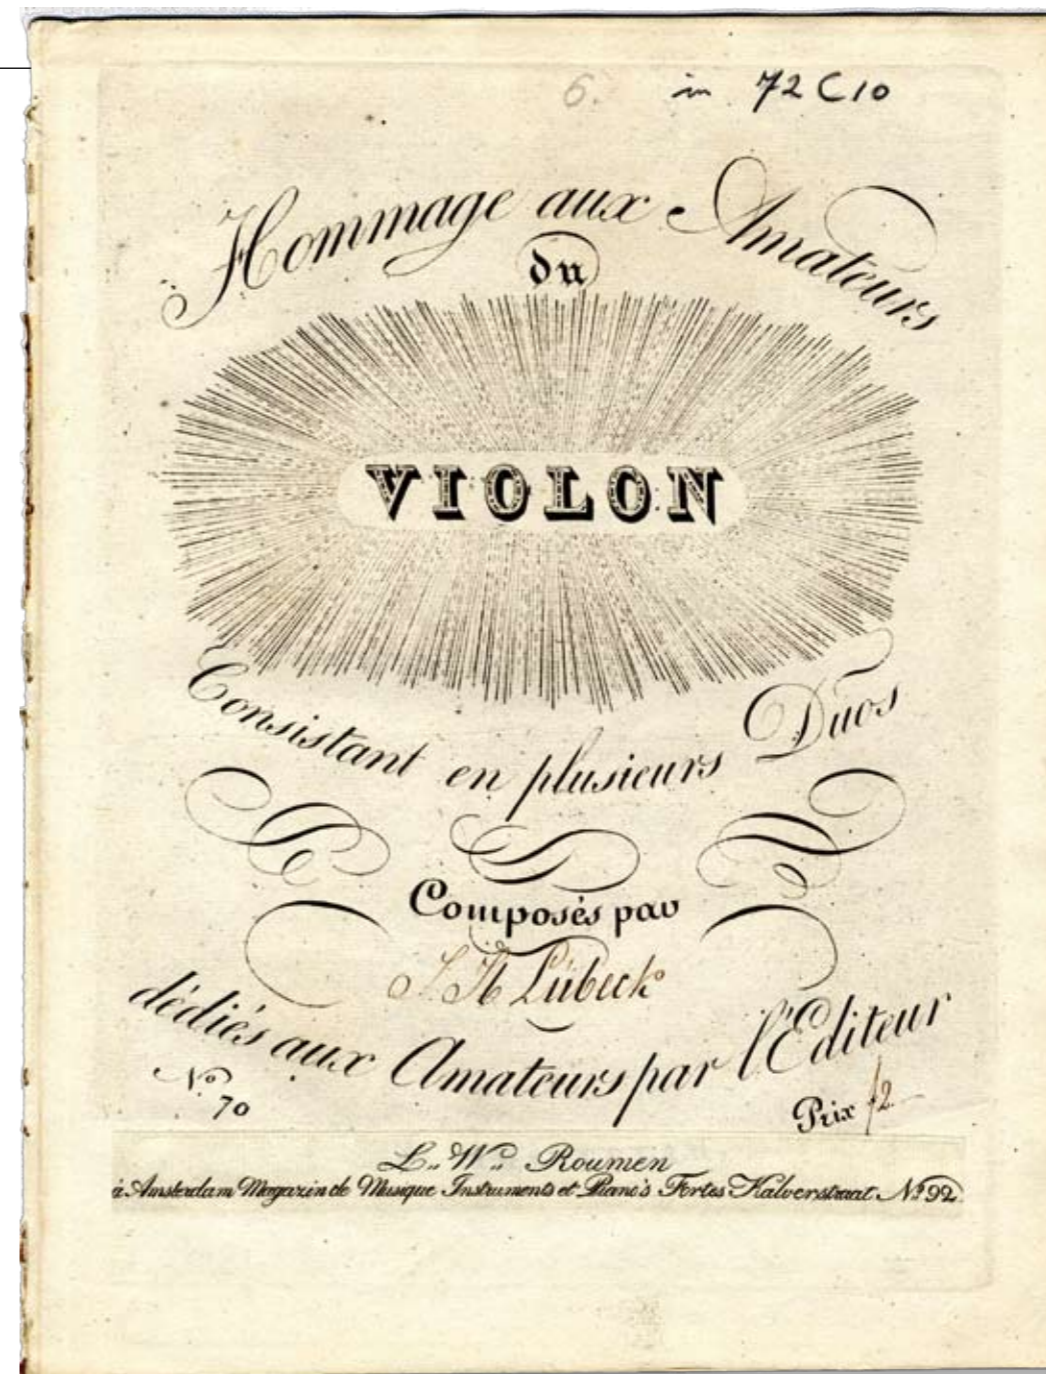 6. in 72 C 10
Hommage aux Amateurs
du
VIOLON
Consistant en plusieurs Duos
Composés par
J. H. Lübeck
dédiés aux Amateurs par l'Editeur
No. 70
Prix f 2
L. Wm. Roumen
à Amsterdam Magazin de Musique Instruments et Piano's Fortes Kalverstraat No 92